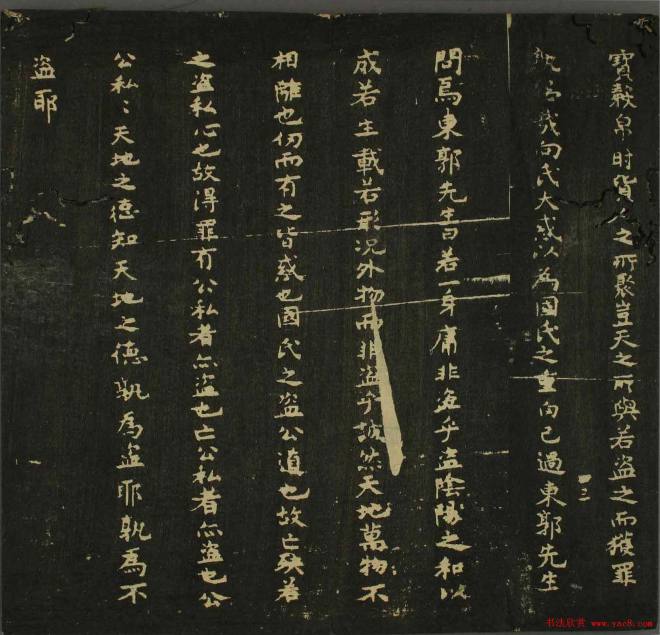 寶穀帛財貨人之所聚豈天之所與若盜之而獲罪
孰怨哉向氏大惑以為國氏之重罔己過東郭先生
問焉東郭先生曰若一身庸非盜乎盜陰陽之和以
成若生載若形況外物而非盜乎誠然天地萬物不
相離也仞而有之皆惑也國氏之盜公道也故亡殃若
之盜私心也故得罪有公私者亦盜也亡公私者亦盜也公
公私〻天地之德知天地之德孰為盜耶孰為不
盜耶
三
书法欣赏 www.yac8.com